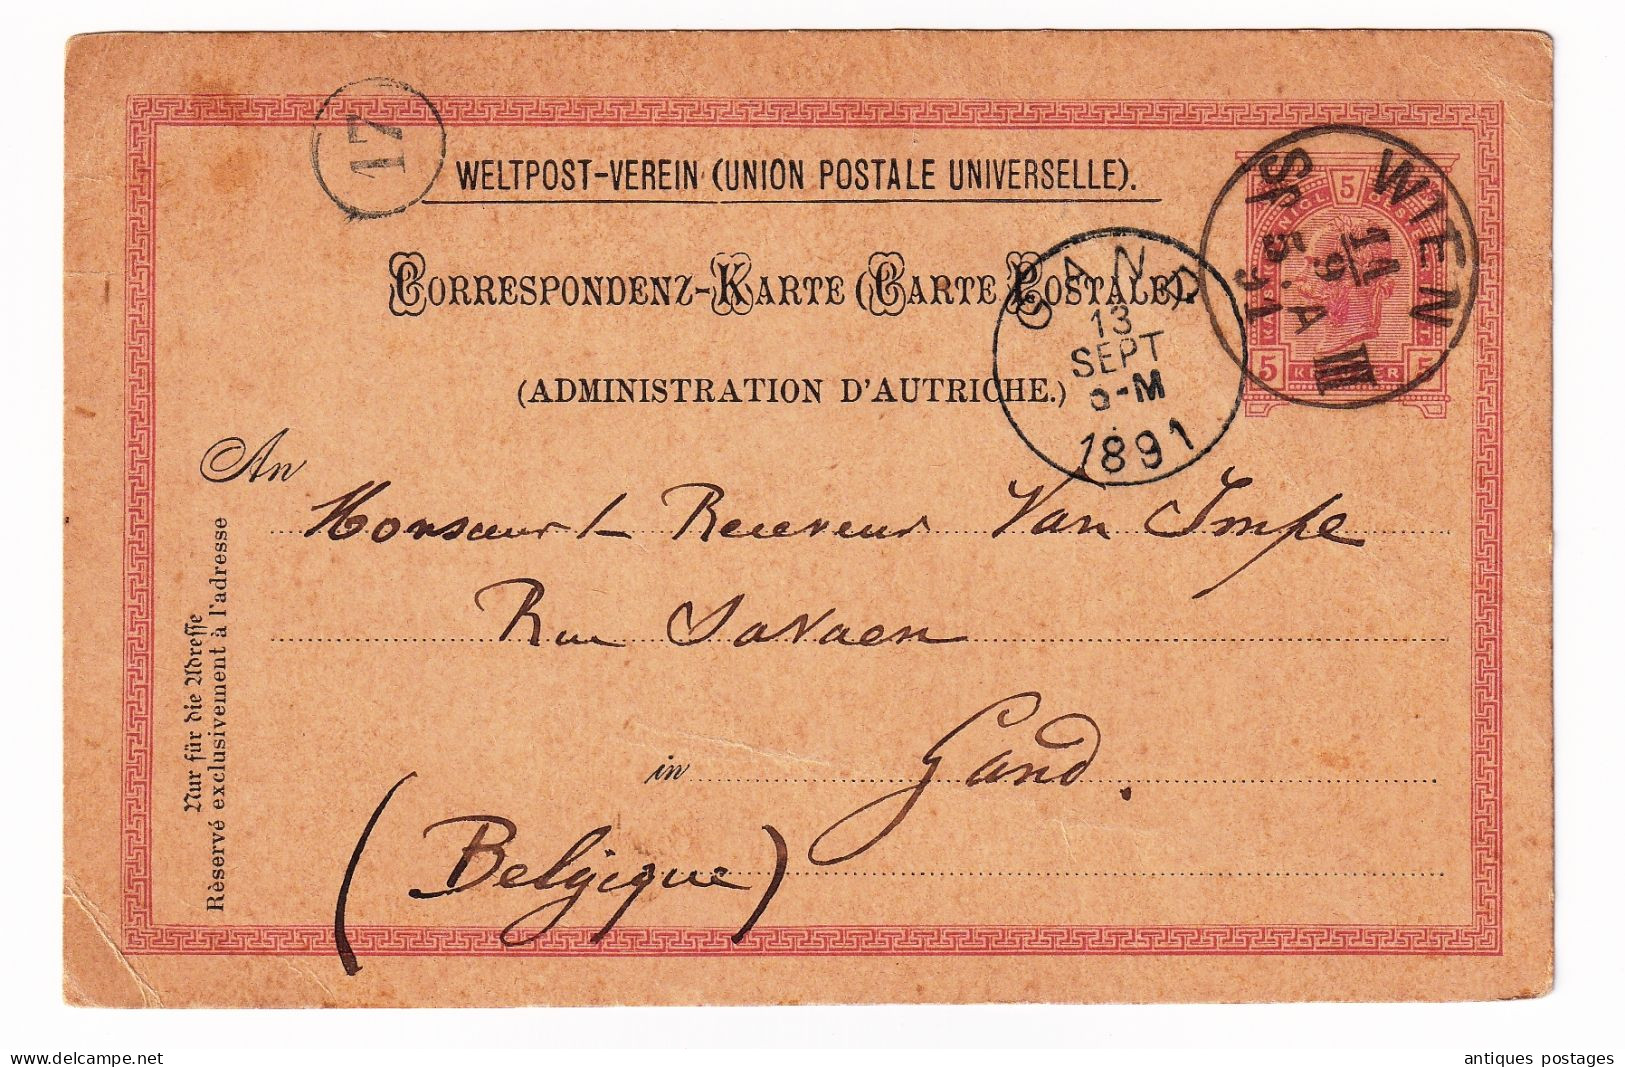 17
WELTPOST-VEREIN (UNION POSTALE UNIVERSELLE).
CORRESPONDENZ-KARTE (CARTE POSTALE).
(ADMINISTRATION D'AUTRICHE.)
WIEN
11
9
5.A
91
III
5
5 KREUZER 5
GAND
13
SEPT
-M
1891
An
Monsieur L Receveur Van Impe
Rue Savaen
in Gand.
(Belgique)
Nur für die Adresse
Réservé exclusivement à l'adresse
www.delcampe.net
antiques postages